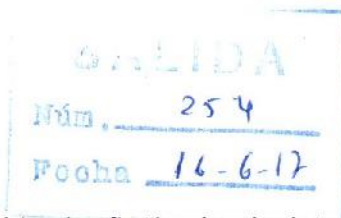 SALIDA
Núm. 254
Fecha 16-6-17